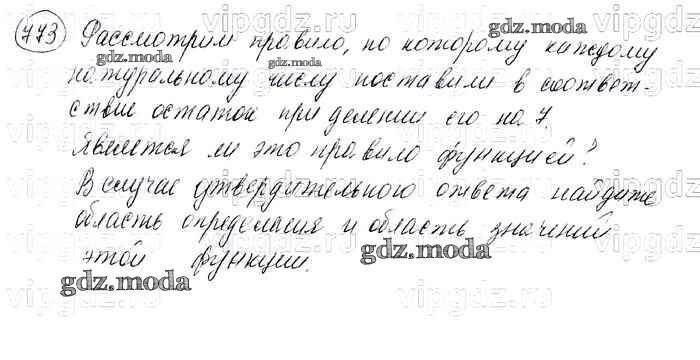 773 Рассмотрим правило, по которому каждому
натуральному числу поставили в соответ-
ствие остаток при делении его на 7.
Является ли это правило функцией?
В случае утвердительного ответа найдите
область определения и область значений
этой функции.
gdz.moda
gdz.moda
gdz.moda
gdz.moda
gdz.moda
vipgdz.ru